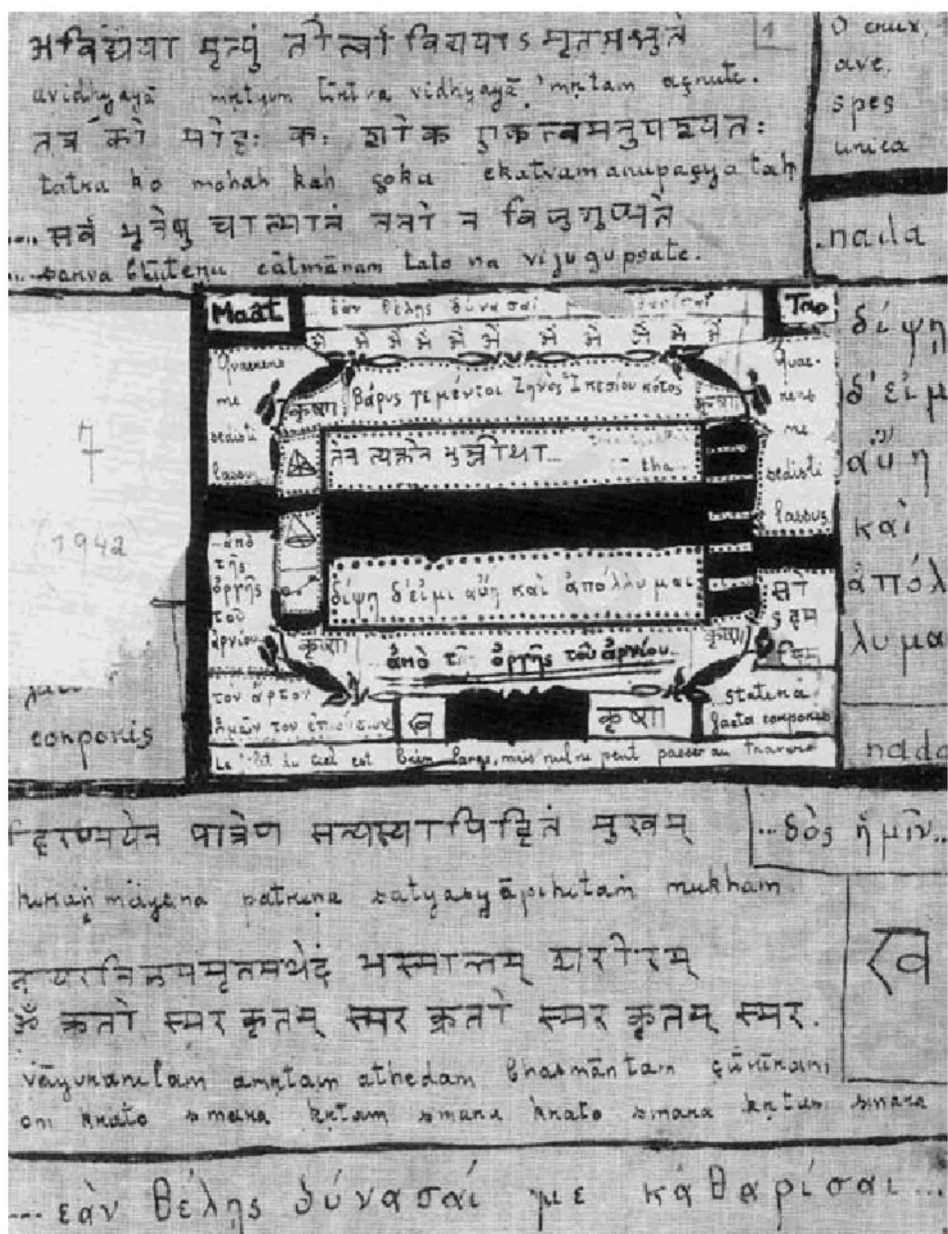 अविद्यया मृत्युं तीर्त्वा विद्ययाऽमृतमश्नुते
avidhyayā mṛtyum tīrtva vidhyayā 'mṛtam açnute.
तत्र को मोहः कः शोक एकत्वमनुपश्यतः
tatra ko mohah kah çoka ekatvamanupaçyatah
.... सर्व भूतेषु चात्मानं ततो न विजुगुप्सते
... sarva bhūteṣu cātmānam tato na vijugupsate.
1
O crux,
ave,
spes
unica
.nada
δίψῃ
δ'εἰμὶ
αὔη
καὶ
ἀπόλ
λυμα
nada
7
1942
componis
Maât
ἐὰν θέλῃς δύνασαί
Tao
Quaerens
me
sedisti
lassus
कृष्ण
βάρυς γε μέντοι Ζηνὸς Ἱκεσίου κότος
कृष्ण
Quae-
rens
me
sedisti
lassus
तेन त्यक्तेन भुञ्जीथा...
tha..
δίψῃ δ'εἰμὶ αὔη καὶ ἀπόλλυμαι
ἀπὸ
τῆς
ὀργῆς
τοῦ
ἀρνίου
कृष्ण
ἀπὸ τῆς ὀργῆς τοῦ ἀρνίου
कृष्ण
τὸν ἄρτον
ἡμῶν τὸν ἐπιούσιον
कृष्ण
statera
facta corporis
Le filet du ciel est bien large, mais nul ne peut passer au travers
हिरण्मयेन पात्रेण सत्यस्यापिहितं मुखम्
...δὸς ἡμῖν..
hiraṇmayena patreṇa satyasyāpihitaṁ mukham
वायुरनिलममृतमथेदं भस्मान्तम् शरीरम्
ॐ क्रतो स्मर कृतम् स्मर क्रतो स्मर कृतम् स्मर.
vāyuranilam amṛtaṃ athedam bhasmāntam çarīram
om krato smara kṛtam smara krato smara kṛtam smara
... ἐὰν θέλῃς δύνασαί με καθαρίσαι...